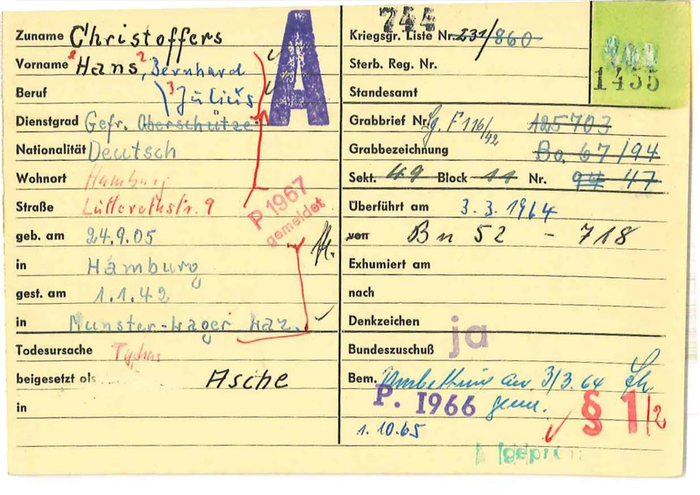 Zuname Christoffers
Vorname 1 Hans, 2 Bernhard
Beruf 3 Julius
Dienstgrad Gefr. Oberschütze
Nationalität Deutsch
Wohnort Hamburg
Straße Lutterothstr. 9
geb. am 24.9.05
in Hamburg
gest. am 1.1.42
in Munster-Lager Laz.
Todesursache Typhus
beigesetzt als Asche
in
A
P 1967
gemeldet
744
Kriegsgr. Liste Nr. 231/860
Sterb. Reg. Nr.
Standesamt
1455
Grabbrief Nr. Lg. F 116/42 A25703
Grabbezeichnung Bo. 67/94
Sekt. 49 Block 11 Nr. 94 47
Überführt am 3.3.1964
von Bn 52 - 718
Exhumiert am
nach
Denkzeichen
ja
Bundeszuschuß
Bem. Umbettung am 3/3.64
P. 1966 gem.
§ 1/2
1.10.65